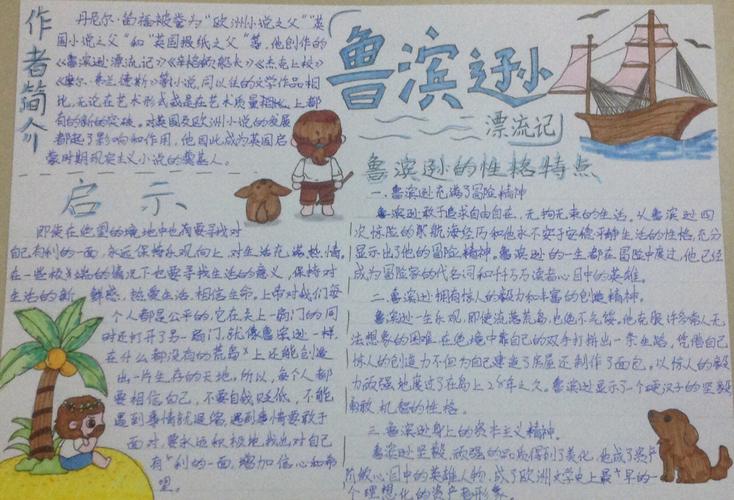 作者简介
丹尼尔·笛福被誉为“欧洲小说之父”“英
国小说之父”和“英国报纸之父”等，他创作的
《鲁滨逊漂流记》《辛格顿船长》《杰克上校》
《摩尔·弗兰德斯》等小说，同以往的文学作品相
比，无论在艺术形式或是在艺术质量相比，上都
有的新的突破。对英国及欧洲小说的发展
都起了影响和作用，他因此成为英国启
蒙时期现实主义小说的奠基人。
鲁滨逊
漂流记
启示
即使在绝望的境地中也需要寻找对
自己有利的一面，永远保持乐观向上，对生活充满热情，
在一些极端的情况下也要寻找生活的意义，保持对
生活的新鲜感，热爱生活，相信生命。上帝对我们每
个人都是公平的，它在关上一扇门的同
时还打开了另一扇门，就像鲁滨逊一样，
在什么都没有的荒岛上还能创造
出一片生存的天地。所以，每个人都
要相信自己，不要自我贬低，不能
遇到事情就退缩，遇到事情要敢于
面对，要永远积极地找出对自己
有利的一面，增加信心和希
望。
鲁滨逊的性格特点
一、鲁滨逊充满了冒险精神
鲁滨逊敢于追求自由自在，无拘无束的生活，从鲁滨逊四
次惊险的航海经历和他永不安于安稳平静生活的性格，充分
显示出了他的冒险精神。鲁滨孙的一生都在冒险中度过，他已经
成为冒险家的代名词和千千万万读者心目中的英雄。
二、鲁滨逊拥有惊人的毅力和丰富的创造精神。
鲁滨逊一生乐观，即使流落荒岛，也绝不气馁。他克服许多常人无
法想象的困难，在绝境中靠自己的双手打拼出一条生路，凭借自己
惊人的创造力不但为自己建造了房屋还制作了面包。以惊人的毅
力顽强地度过了在岛上28年之久。鲁滨逊显示了一个硬汉子的坚毅
勇敢，机智的性格。
三、鲁滨逊身上的资本主义精神。
鲁滨逊坚毅、顽强的品质得到了美化，他成了资产
阶级心目中的英雄人物，成了欧洲文学史上最早的一
个理想化的资产者形象。